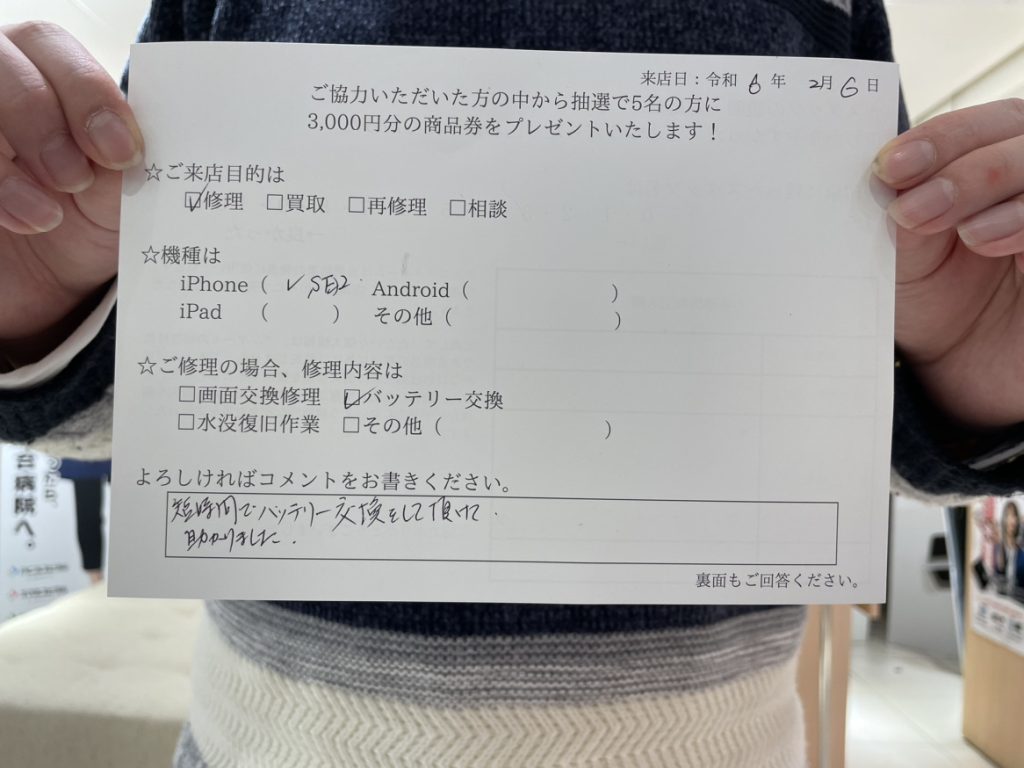 来店日：令和 6 年 2月 6 日
ご協力いただいた方の中から抽選で5名の方に
3,000円分の商品券をプレゼントいたします！
☆ご来店目的は
☑修理 □買取 □再修理 □相談
☆機種は
iPhone（ ✓ SE2 Android（ ）
iPad （ ） その他（ ）
☆ご修理の場合、修理内容は
□画面交換修理 ☑バッテリー交換
□水没復旧作業 □その他（ ）
よろしければコメントをお書きください。
短時間でバッテリー交換をして頂けて
助かりました．
裏面もご回答ください。
病院へ。